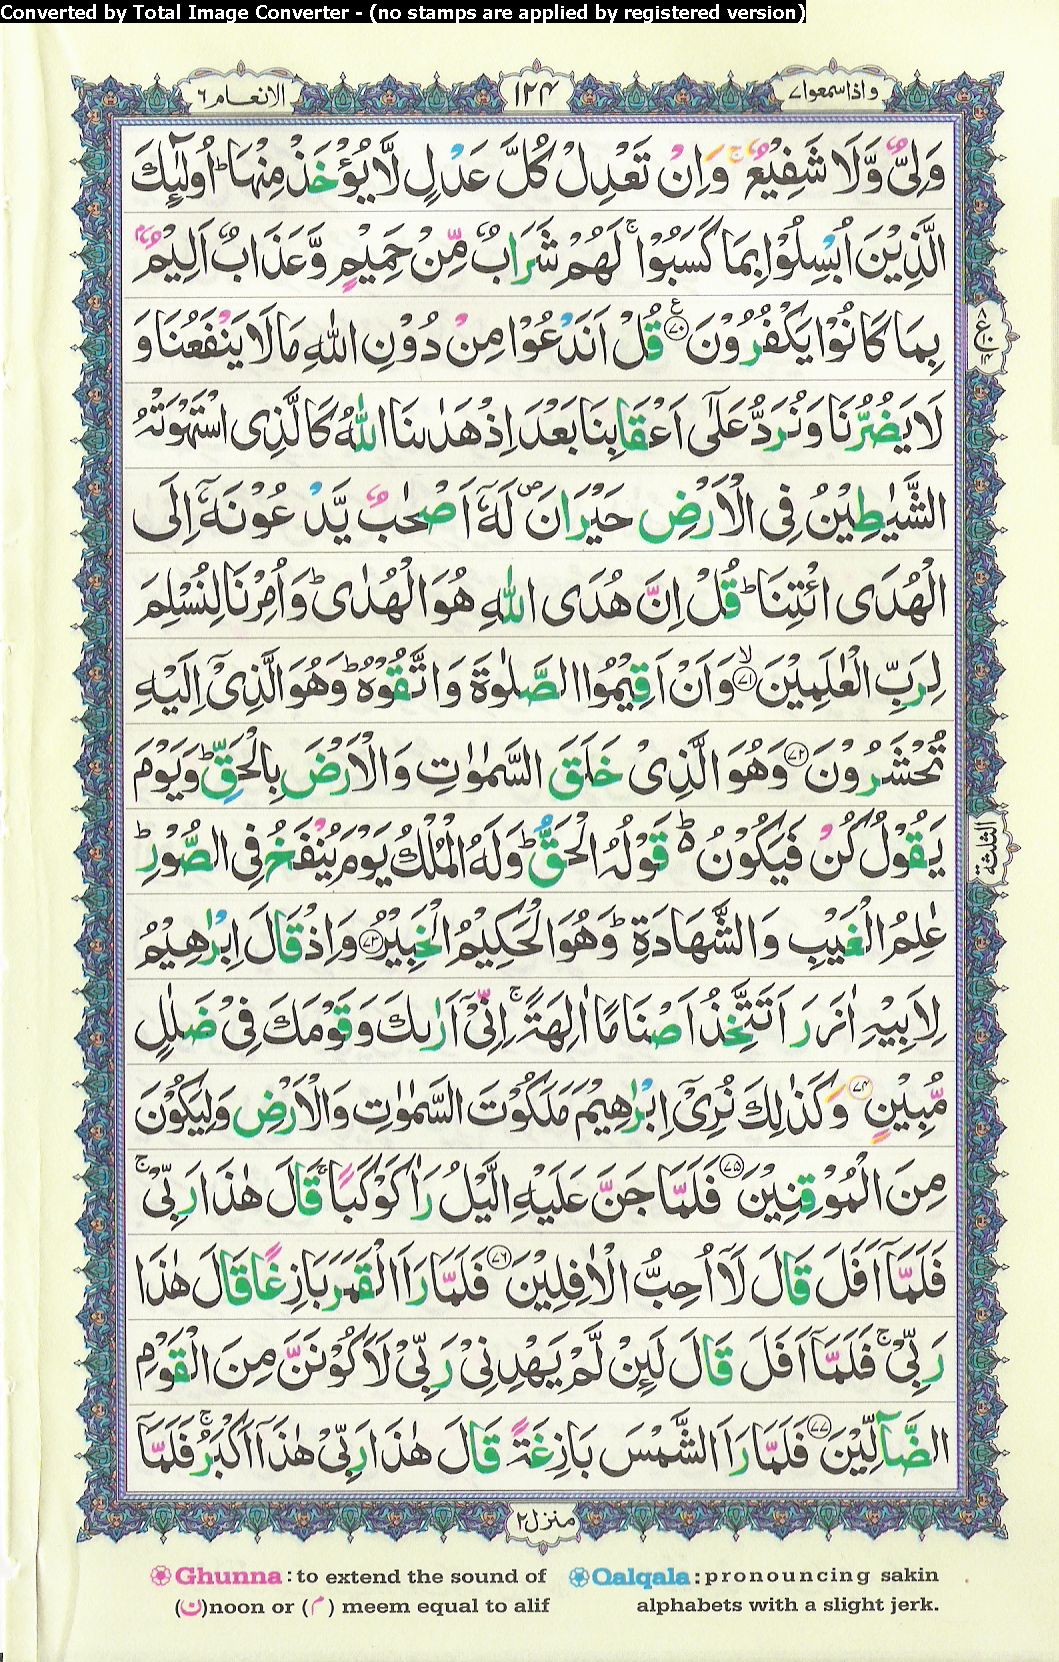 Converted by Total Image Converter - (no stamps are applied by registered version)
واذاسمعوا۷ ۱۲۴ الانعام۶
وَلِیٌّ وَّلَا شَفِیْعٌ ۚ وَاِنْ تَعْدِلْ كُلَّ عَدْلٍ لَّا یُؤْخَذْ مِنْهَا ؕ اُولٰٓئِكَ
الَّذِیْنَ اُبْسِلُوْا بِمَا كَسَبُوْا ۚ لَهُمْ شَرَابٌ مِّنْ حَمِیْمٍ وَّعَذَابٌ اَلِیْمٌۢ
بِمَا كَانُوْا یَكْفُرُوْنَ ۷۰ ع قُلْ اَنَدْعُوْا مِنْ دُوْنِ اللّٰهِ مَا لَا یَنْفَعُنَا وَ
ع ۸ ۱۰ ۱۴
لَا یَضُرُّنَا وَنُرَدُّ عَلٰۤی اَعْقَابِنَا بَعْدَ اِذْ هَدٰىنَا اللّٰهُ كَالَّذِی اسْتَهْوَتْهُ
الشَّیٰطِیْنُ فِی الْاَرْضِ حَیْرَانَ ۪ لَهٗۤ اَصْحٰبٌ یَّدْعُوْنَهٗۤ اِلَی
الْهُدَی ائْتِنَا ؕ قُلْ اِنَّ هُدَی اللّٰهِ هُوَ الْهُدٰی ؕ وَاُمِرْنَا لِنُسْلِمَ
لِرَبِّ الْعٰلَمِیْنَ ۷۱ ۙ وَاَنْ اَقِیْمُوا الصَّلٰوةَ وَاتَّقُوْهُ ؕ وَهُوَ الَّذِیْۤ اِلَیْهِ
تُحْشَرُوْنَ ۷۲ وَهُوَ الَّذِیْ خَلَقَ السَّمٰوٰتِ وَالْاَرْضَ بِالْحَقِّ ؕ وَیَوْمَ
یَقُوْلُ كُنْ فَیَكُوْنُ ؕ۬ قَوْلُهُ الْحَقُّ ؕ وَلَهُ الْمُلْكُ یَوْمَ یُنْفَخُ فِی الصُّوْرِ ؕ
الثلثة
عٰلِمُ الْغَیْبِ وَالشَّهَادَةِ ؕ وَهُوَ الْحَكِیْمُ الْخَبِیْرُ ۷۳ وَاِذْ قَالَ اِبْرٰهِیْمُ
لِاَبِیْهِ اٰزَرَ اَتَتَّخِذُ اَصْنَامًا اٰلِهَةً ۚ اِنِّیْۤ اَرٰىكَ وَقَوْمَكَ فِیْ ضَلٰلٍ
مُّبِیْنٍ ۷۴ وَكَذٰلِكَ نُرِیْۤ اِبْرٰهِیْمَ مَلَكُوْتَ السَّمٰوٰتِ وَالْاَرْضِ وَلِیَكُوْنَ
مِنَ الْمُوْقِنِیْنَ ۷۵ فَلَمَّا جَنَّ عَلَیْهِ الَّیْلُ رَاٰ كَوْكَبًا ۚ قَالَ هٰذَا رَبِّیْ ۚ
فَلَمَّاۤ اَفَلَ قَالَ لَاۤ اُحِبُّ الْاٰفِلِیْنَ ۷۶ فَلَمَّا رَاَ الْقَمَرَ بَازِغًا قَالَ هٰذَا
رَبِّیْ ۚ فَلَمَّاۤ اَفَلَ قَالَ لَىِٕنْ لَّمْ یَهْدِنِیْ رَبِّیْ لَاَكُوْنَنَّ مِنَ الْقَوْمِ
الضَّآلِّیْنَ ۷۷ فَلَمَّا رَاَ الشَّمْسَ بَازِغَةً قَالَ هٰذَا رَبِّیْ هٰذَاۤ اَكْبَرُ ۚ فَلَمَّاۤ
منزل۲
Ghunna : to extend the sound of
(ن)noon or (م) meem equal to alif
Qalqala : pronouncing sakin
alphabets with a slight jerk.